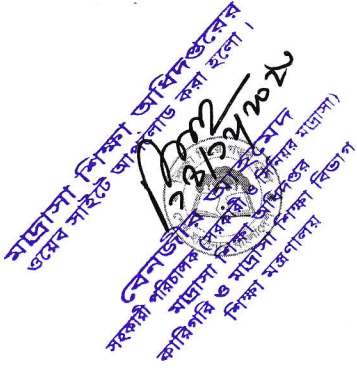 মাদ্রাসা শিক্ষা অধিদপ্তরের
ওয়েব সাইটে আপলোড করা হলো।
বেনজীর আহমেদ
সহকারী পরিচালক (সরকারী ও সিনিয়র মাদ্রাসা)
মাদ্রাসা শিক্ষা অধিদপ্তর
কারিগরি ও মাদ্রাসা শিক্ষা বিভাগ
শিক্ষা মন্ত্রণালয়